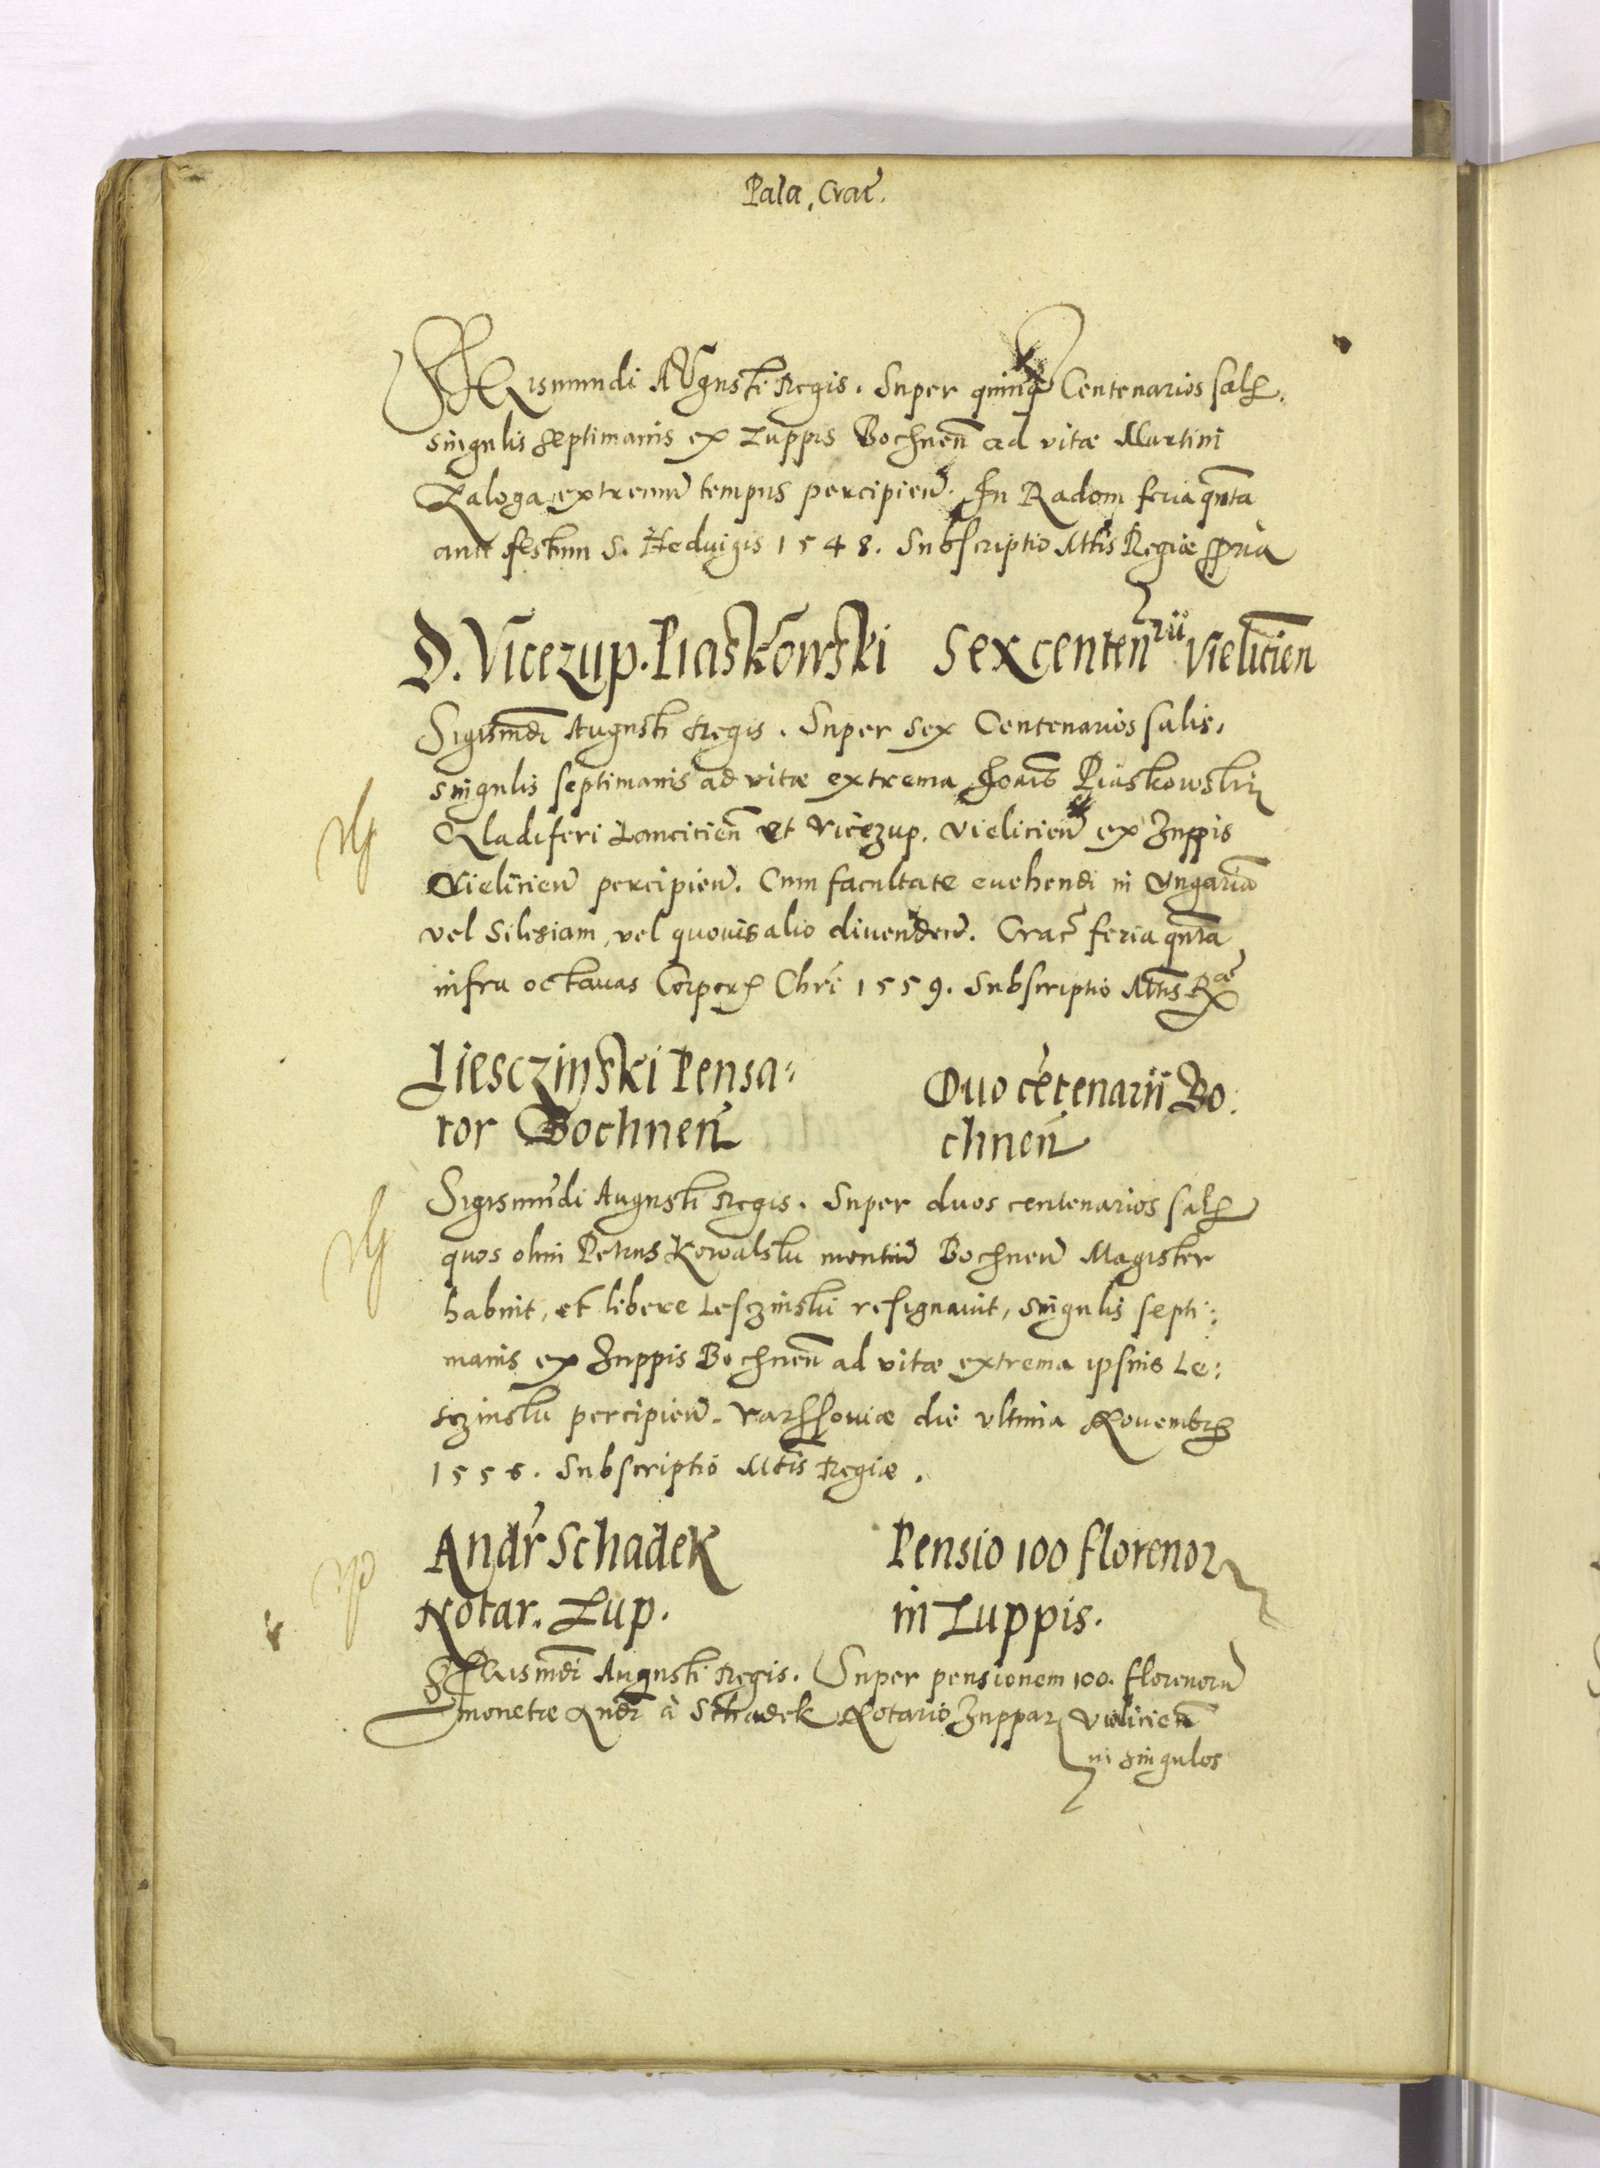 Pala. Crac̃.
Sigismundi Augusti Regis. Super quinq̃ Centenarios salis
singulis septimanis ex Zuppis Bochneñ ad vitæ Martini
Zaloga extremũ tempus percipieñ. In Radom feria quīta
ante festum S. Heduigis 1548. Subscriptio Mttis Regiæ ppria
D. Vicezup. Piaskowski Sex centenarii Vieliciēn
Sigismdi Augusti Regis. Super sex Centenarios salis,
singulis septimanis ad vitæ extrema Joānis Piaskowskii
Gladiferi Lancicieñ et Vicezup. Vielicieñ ex Zuppis
Vielicieñ percipieñ. Cum facultate euehendi in Vngariā
vel Silesiam, vel quouis alio diuendeñ. Crac̃ feria quīta
infra octauas Corporis Chrī 1559. Subscriptio Mttis Ræ
Liesczinski Pensa-
tor Bochneñ
Duo cētenarii Bo-
chneñ
Sigismūdi Augusti Regis. Super duos centenarios salis
quos olim Petrus Kowalski montiũ Bochneñ Magister
habuit, et libere Lesczinskii resignauit, singulis septi:
manis ex Zuppis Bochneñ ad vitæ extrema ipsius Le:
sczinskii percipieñ. Varssouiæ die vltima Nouembris
1556. Subscriptio Mttis Regiæ.
Andr̃ Schadek
Notar. Zup.
Pensio 100 florenor
in Zuppis.
Sigismdi Augusti Regis. Super pensionem 100. florenorũ
monetæ Andr̃ à Schadek Notario Zuppar Vielicieñ
in singulos